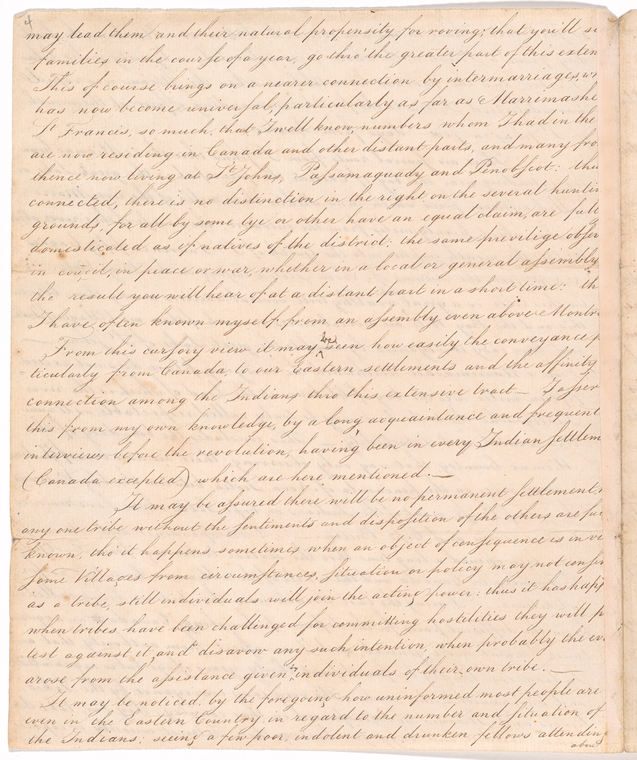 4
may lead them and their natural propensity for roving; that you'll se
families in the course of a year, go thro' the greater part of this exten
This of course brings on a nearer connection by intermarriages, wh
has now become universal, particularly as far as Marrimashe
St Francis, so much, that I well know, numbers whom I had in the
are now residing in Canada and other distant parts, and many fro
thence now living at St Johns, Passamaquady and Penobscot: thu
connected, there is no distinction in the right on the several huntin
grounds, for all by some tye or other have an equal claim, are full
domesticated as if natives of the district: the same previlige obser
in council, in peace or war, whether in a local or general assembly
the result you will hear of at a distant part in a short time: th
I have often known myself from an assembly even above Montre
From this cursory view it may be seen how easily the conveyance p
ticularly from Canada, to our Eastern settlements and the affinity
connection among the Indians thro this extensive tract — I asser
this from my own knowledge, by a long acquaintance and frequent
interviews before the revolution, having been in every Indian settlem
(Canada excepted) which are here mentioned. —
It may be assured there will be no permanent settlement
any one tribe without the sentiments and disposition of the others are
known, tho' it happens sometimes when an object of consequence is in vi
some Villages from circumstances, situation or policy may not
as a tribe, still individuals will join the acting power: thus it has happ
when tribes have been challenged for committing hostilities they will p
test against it, and disavow any such intention, when probably the ev
arose from the assistance given by individuals of their own tribe. —
It may be noticed, by the foregoing how uninformed most people are
even in the Eastern Country in regard to the number and situation of
the Indians: seeing a few poor, indolent and drunken fellows attending
abou